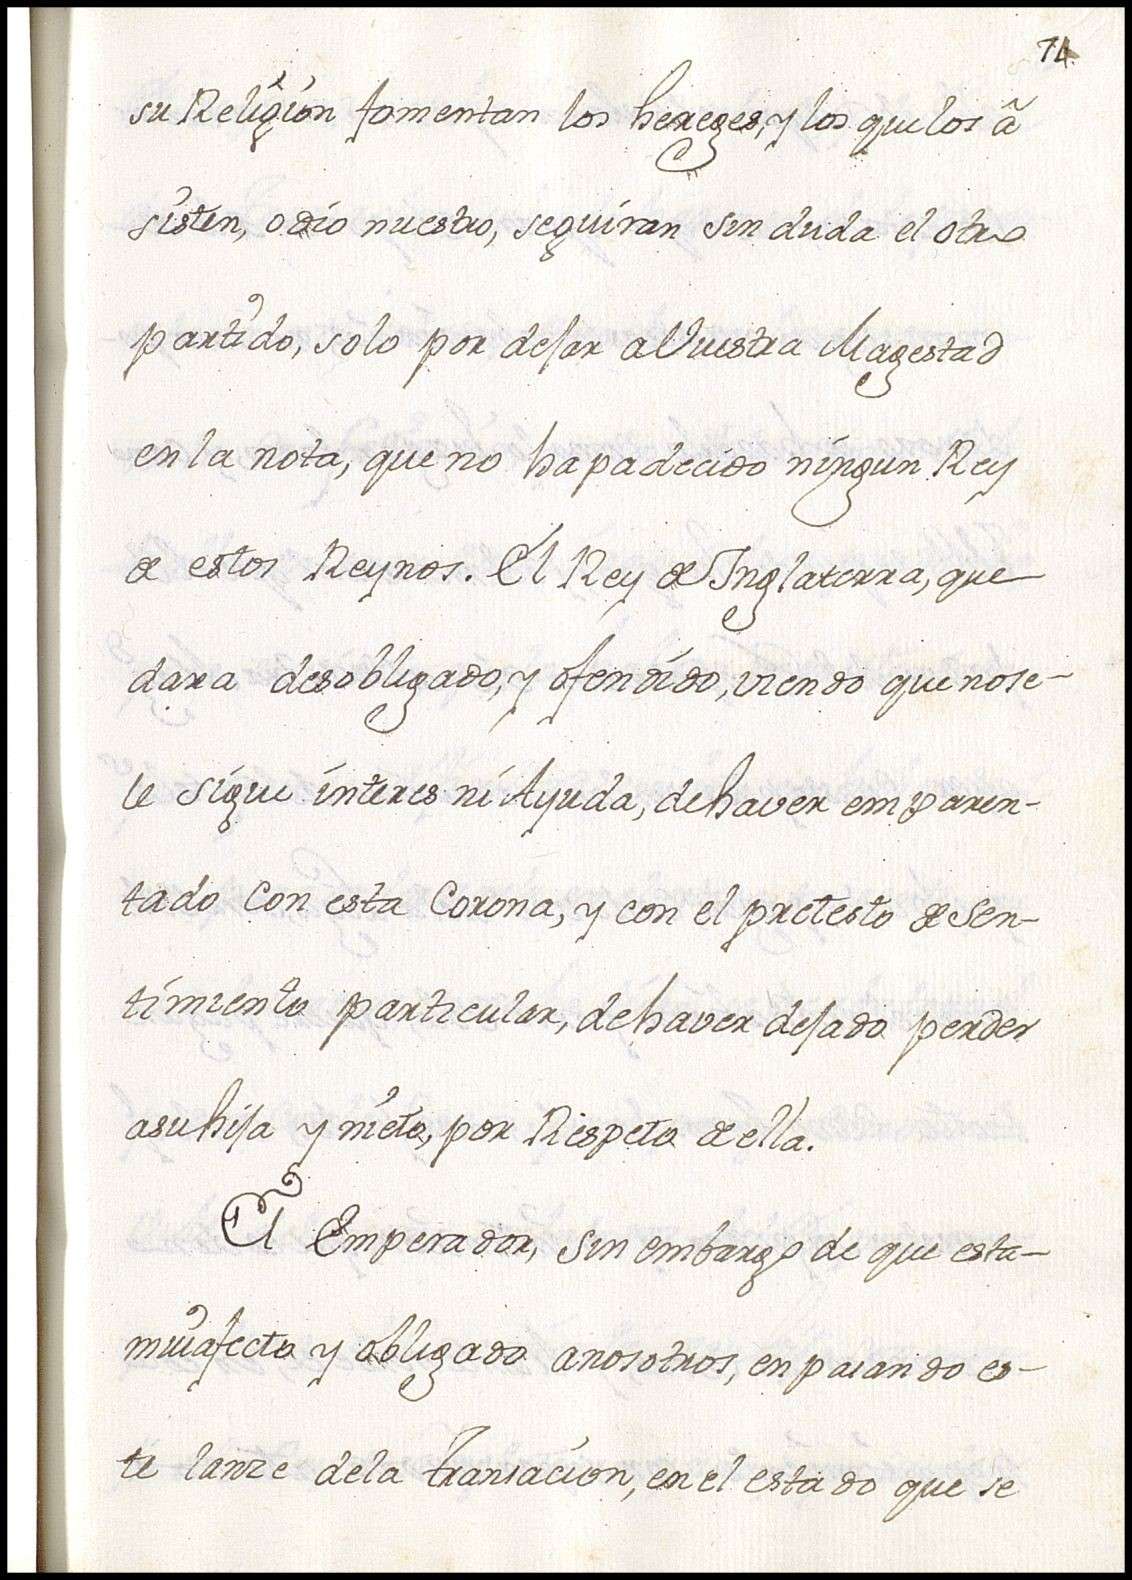 74
su Religion fomentan los hereges, y los que los ã
sisten, odio nuestro, seguiran sin duda el otro
partido, solo por dejar a Vuestra Magestad
en la nota, que no ha padecido ningun Rey
de estos Reynos. El Rey de Inglaterra, que
dara desobligado, y ofendido, viendo que no se-
le sigue interes ni Ayuda, de haver emparen-
tado Con esta Corona, y con el pretesto de sen-
timiento particular, de haver dejado perder
a su hija y nieto, por Respeto de ella.
El Emperador, sin embargo de que esta-
mui afecto y obligado a nosotros, en pasando es-
te lanze de la Transacion, en el estado que se